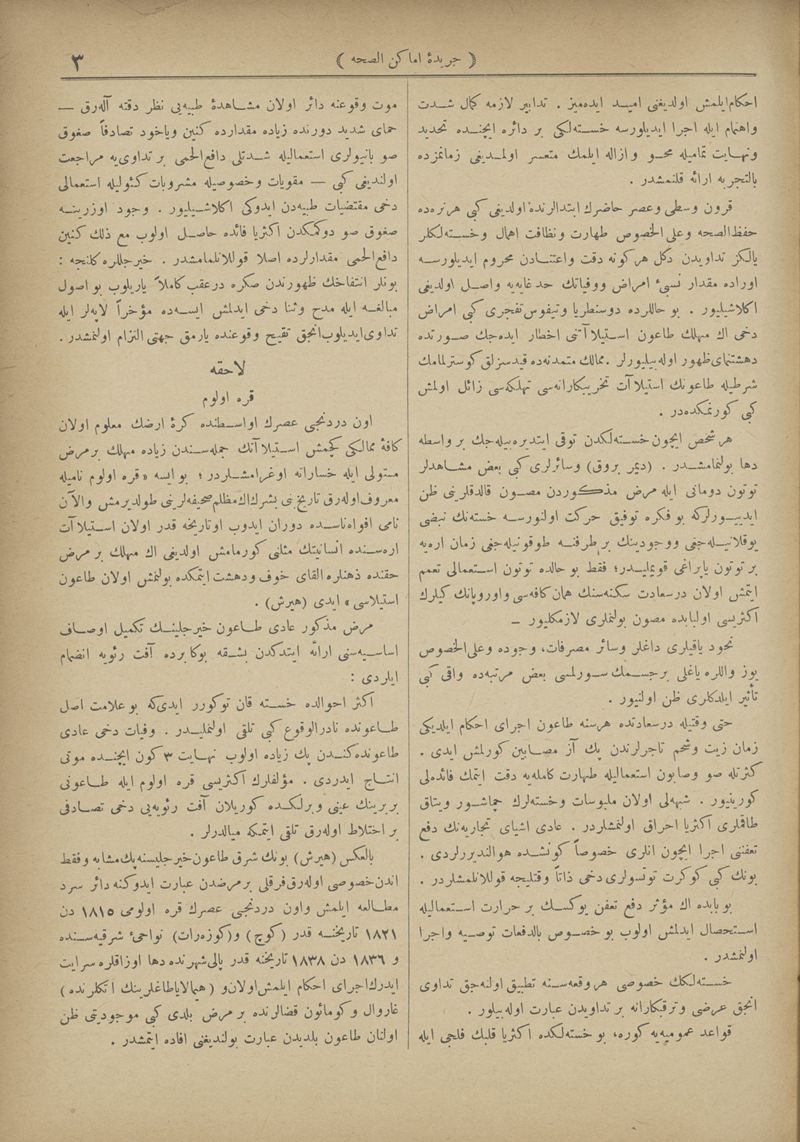 ﴿ جريدهٔ اماكن الصحه ﴾
٣
احكام ايلمش اولديغنى اميد ايده‌ميز . تدابير لازمه كمال شدت
واهتمام ايله اجرا ايديلورسه خسته‌لكى بر دائره ايچنده تحديد
ونهايت تماميله محو وازاله ايلمك متعسر اولمديغى زمانمزده
بالتجربه ارائه قلنمشدر .
قرون وسطى وعصر حاضرك ابتدالرنده اولديغى كبى هرنره‌ده
حفظ‌الصحه وعلى‌الخصوص طهارت ونظافت اهمال وخسته‌لكلر
يالكز تداويدن دكل هركونه دقت واعتنادن محروم ايديلورسه
اوراده مقدار نسبئ امراض ووفياتك حد غايه‌يه واصل اولديغى
اكلاشيليور . بو حاللرده دوسنطريا وتيفوس تفجرى كبى امراض
دخى اك مهلك طاعون استيلاآتنى اخطار ايده‌جك صورتده
دهشتنماى ظهور اوله‌بيلورلر . ممالك متمدنه‌ده قيدسزلق كوسترلمامك
شرطيله طاعونك استيلاآت تخريبكارانه‌سى تهلكه‌سى زائل اولمش
كبى كورنمكده‌در .
هر شخص ايچون خسته‌لكدن توقى ايتديره‌بيله‌جك بر واسطه
دها بولنمامشدر . (ديمر بروق) وسائرلرى كبى بعض مشاهدلر
توتون دومانى ايله مرض مذكوردن مصون قالدقلرينى ظن
ايدييورلركه بو فكره توفيق حركت اولنورسه خسته‌نك نبضى
يوقلانيله‌جغى ووجودينك بر طرفنه طوقونيله‌جغى زمان اره‌يه
بر توتون ياپراغى قويمليدر؛ فقط بو حالده توتون استعمالى تعمم
ايتمش اولان درسعادت سكنه‌سنك همان كافه‌سى واوروپانك كيلرك
اكثريسى اولبابده مصون بولنملرى لازمكليور –
نخود ياقيلرى داغلر وسائر مصرفات، وجوده وعلى‌الخصوص
يوز واللره ياغلى برجسمك سورلمسى بعض مرتبه‌ده واقى كبى
تأثير ايلدكلرى ظن اولنيور .
حتى وقتيله درسعادتده هرسنه طاعون اجراى احكام ايلديكى
زمان زيت وشحم تاجرلرندن پك آز مصابين كورلمش ايدى .
كثرتله صو وصابون استعماليله طهارت كامله‌يه دقت ايتمك فائده‌لى
كورينيور . شبهه‌لى اولان ملبوسات وخسته‌لرك چماشور ويتاق
طاقملرى اكثريا احراق اولنمشلردر . عادى اشياى تجاريه‌نك دفع
تعفنى اجرا ايچون انلرى خصوصاً كونشده هوالنديررلردى .
بونك كبى كوكرت توتسولرى دخى ذاتاً وقتليجه قوللانلمشلردر .
بو بابده اك مؤثر دفع تعفن يوكسك بر حرارت استعماليله
استحصال ايدلمش اولوب بو خصوص بالدفعات توصيه واجرا
اولنمشدر .
خسته‌لكك خصوصى هر وقعه‌سنه تطبيق اولنه‌جق تداوى
انجق عرضى وترقبكارانه بر تداويدن عبارت اوله‌بيلور .
قواعد عموميه‌يه كوره، بو خسته‌لكده اكثريا قلبك فلجى ايله
موت وقوعنه دائر اولان مشاهدهٔ طبيه‌يى نظر دقته آله‌رق –
حماى شديد دورنده زياده مقدارده كنين وياخود تصادفاً صغوق
صو بانيولرى استعماليله شدتلى دافع‌الحمى بر تداوى‌يه مراجعت
اولنديغى كبى – مقويات وخصوصيله مشروبات كئوليله استعمالى
دخى مقتضيات طبيه‌دن ايدوكى اكلاشيليور . وجود اوزرينه
صغوق صو دوكمكدن اكثريا فائده حاصل اولوب مع ذلك كنين
دافع‌الحمى مقدارلرده اصلا قوللانلمامشدر . خيرجللره كلنجه :
بونلر انتفاخك ظهورندن صكره درعقب كاملاً ياريلوب بو اصول
مبالغه ايله مدح وثنا دخى ايدلمش ايسه‌ده مؤخراً لاپه‌لر ايله
تداوى ايديلوب انجق تقيح وقوعنده يارمق جهتى التزام اولنمشدر .
لاحقه
قره اولوم
اون دردنجى عصرك اواسطنده كرهٔ ارضك معلوم اولان
كافهٔ ممالكى كچمش استيلاآتك جمله‌سندن زياده مهلك بر مرض
مستولى ايله خسارانه اوغرامشلردر؛ بوايسه « قره اولوم ناميله
معروف اوله‌رق تاريخ نى بشرك اك مظلم صحيفه‌لرينى طولديرمش والآن
نامى افواه ناسده دوران ايدوب اوتاريخه قدر اولان استيلاآت
اره‌سنده انسانيتك مثلنى كورمامش اولديغى اك مهلك بر مرض
حقنده ذهنلره القاى خوف ودهشت ايتمكده بولنمش اولان طاعون
استيلاسى » ايدى (هيرش) .
مرض مذكور عادى طاعون خيرجلينك تكميل اوصاف
اساسيه‌سنى ارائه ايتدكدن بشقه بوكا برده آفت رئويه انضمام
ايلردى :
اكثر احوالده خسته قان توكورر ايدى‌كه بو علامت اصل
طاعونده نادرالوقوع كبى تلقى اولنمليدر . وفيات دخى عادى
طاعونده‌كندن پك زياده اولوب نهايت ٣ كون ايچنده موتى
انتاج ايدردى . مؤلفلرك اكثريسى قره اولوم ايله طاعونى
بربرينك عينى وبرلكده كوريلان آفت رئويه‌يى دخى تصادفى
بر اختلاط اوله‌رق تلقى ايتمكه ميالدرلر .
بالعكس (هيرش) بونك شرق طاعون خيرجليسنه پك مشابه وفقط
اندن خصوصى اوله‌رق فرقلى برمرضدن عبارت ايدوكنه دائر سرد
مطالعه ايلمش واون دردنجى عصرك قره اولومى ١٨١٥ دن
١٨٢١ تاريخنه قدر (كوچ) و(كوزه‌رات) نواحئ شرقيه‌سنده
و ١٨٣٦ دن ١٨٣٨ تاريخنه قدر پالى شهرنده دها اوزاقلره سرايت
ايدرك اجراى احكام ايلمش اولان و (هيمالايا طاغلرينك اتكلرنده)
غاروال وكومائون قضالرنده بر مرض بلدى كبى موجوديتى ظن
اولنان طاعون بلديدن عبارت بولنديغى افاده ايتمشدر .